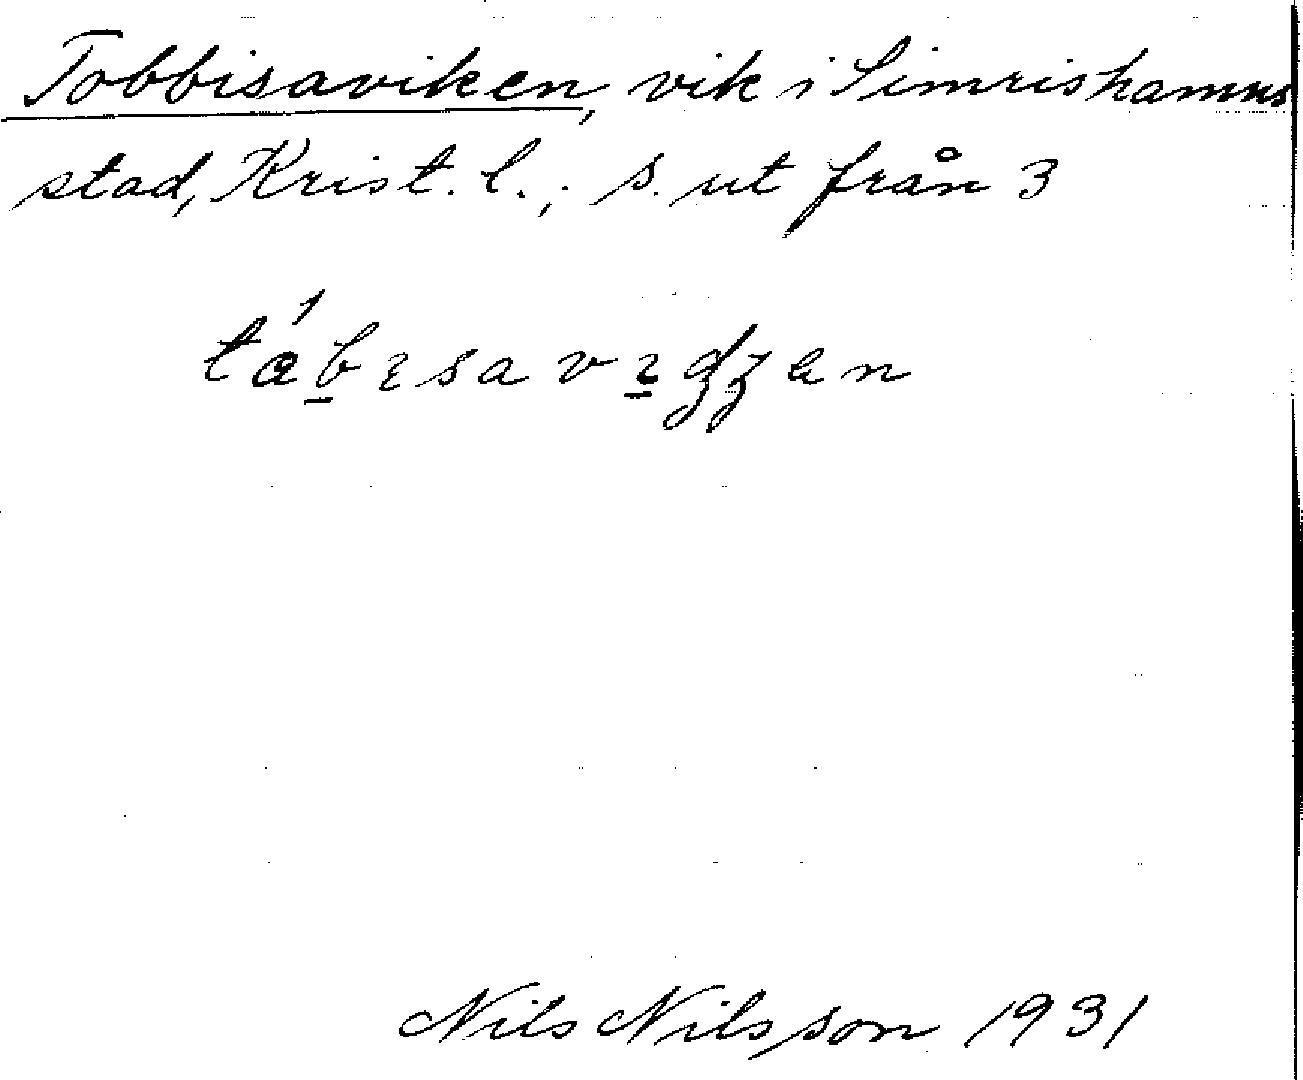 Tobbisaviken, vik i Simrishamns
stad, Krist. l.; s. ut från 3
tábɪsavɪdʒen
Nils Nilsson 1931